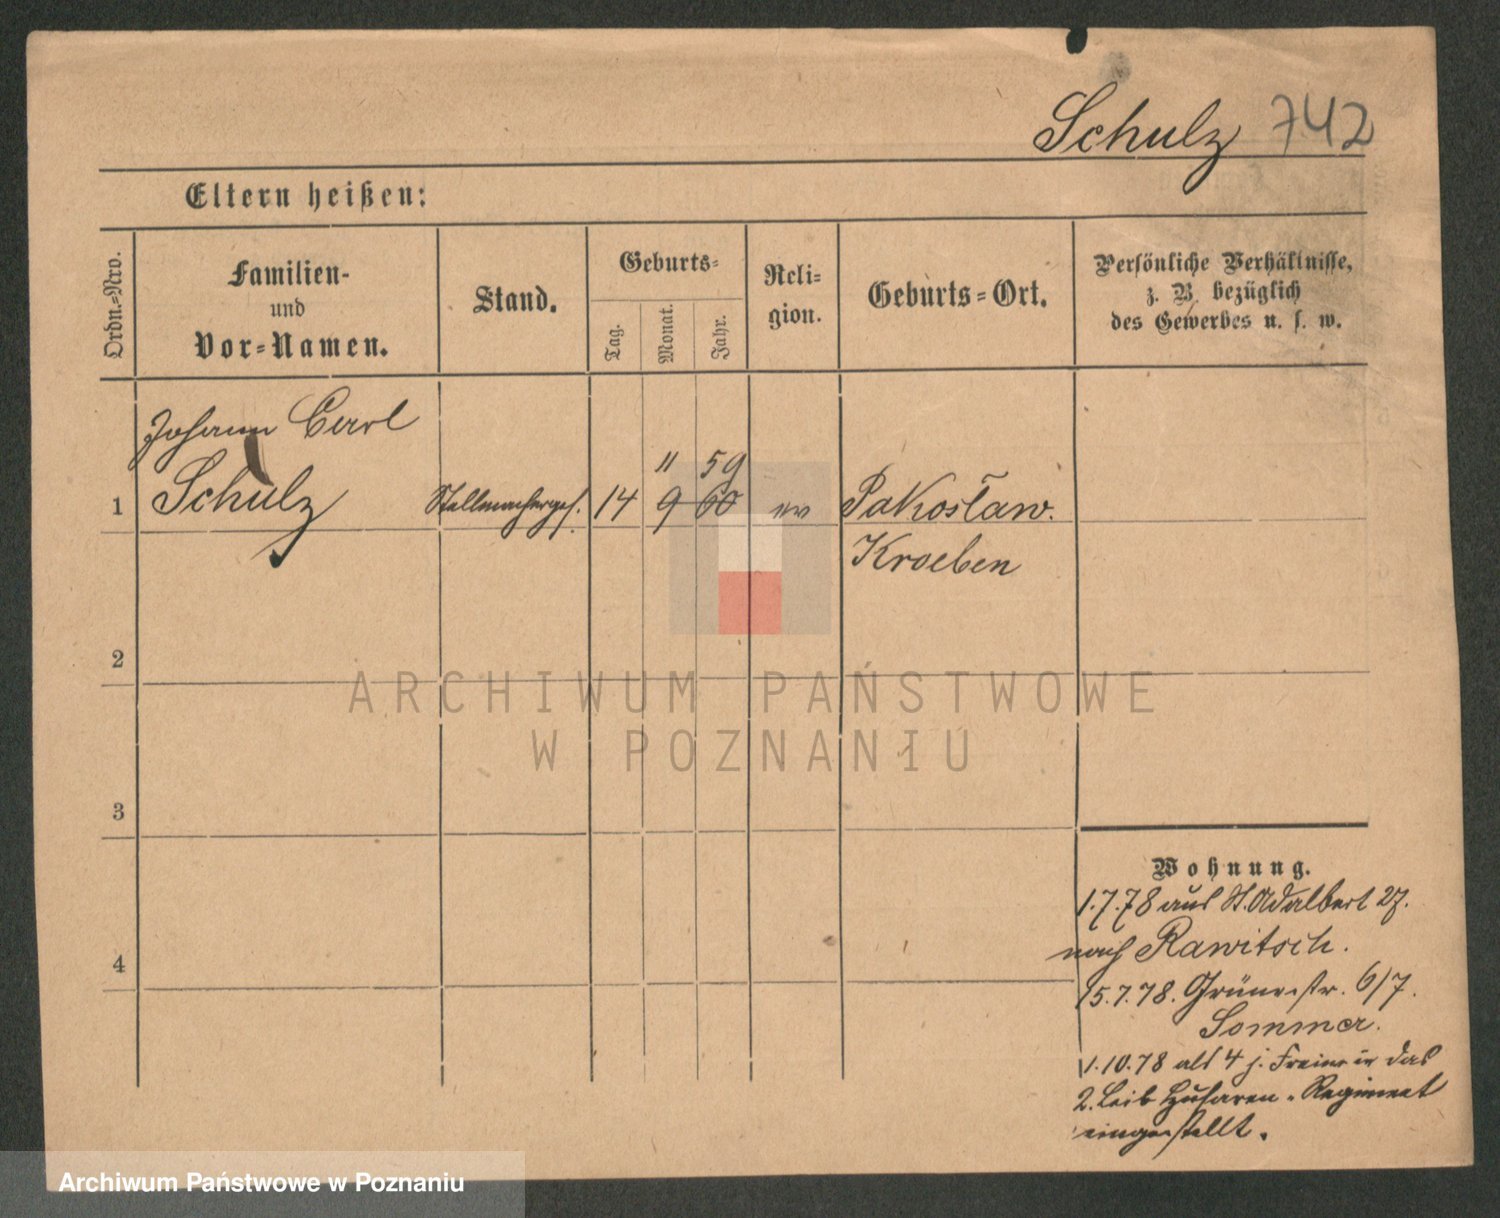 Schulz 742
Eltern heißen:
Ordn.=Nro.
Familien-
und
Vor=Namen.
Stand.
Geburts=
Tag.
Monat.
Jahr.
Reli-
gion.
Geburts=Ort.
Persönliche Verhältnisse,
z. B. bezüglich
des Gewerbes u. s. w.
Johann Carl
11 59
1 Schulz Stellmacherges. 14 9 60 ev Pakosław.
Kroeben
2
3
4
Wohnung.
1.7.78 aus St. Adalbert 27.
nach Rawitsch.
15.7.78. Grünestr. 6/7.
Sommer.
1.10.78 als 4 j. Freiw in das
2. Leib Husaren-Regiment
eingestellt.
ARCHIWUM PAŃSTWOWE
W POZNANIU
Archiwum Państwowe w Poznaniu